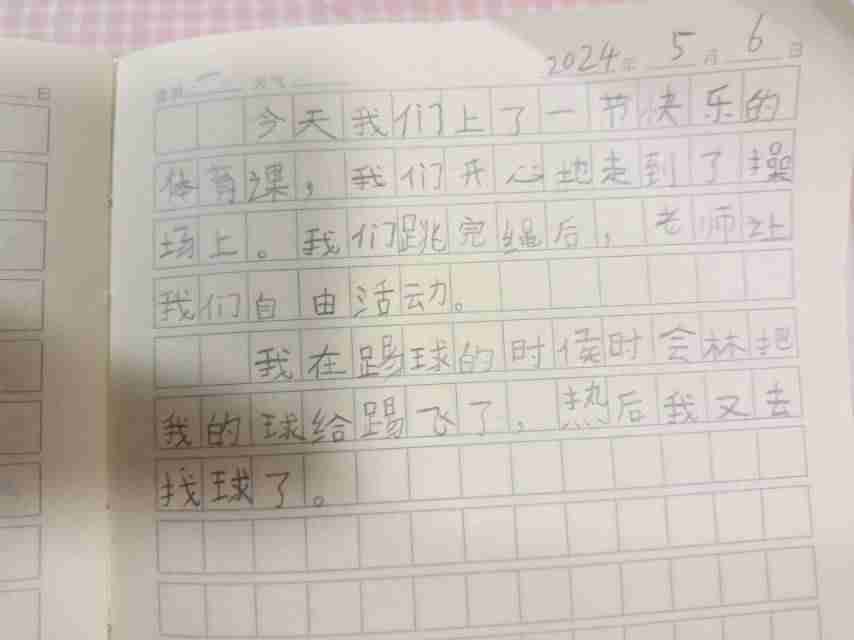 2024年 5月 6日
星期 一 天气
今天我们上了一节快乐的
体育课，我们开心地走到了操
场上。我们跳完绳后，老师让
我们自由活动。
我在踢球的时侯时会林把
我的球给踢飞了，热后我又去
找球了。
日